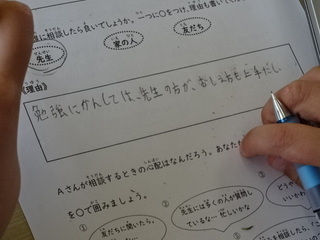 に相談したら良いでしょうか。一つに〇をつけ、理由も書い
先生
家の人
友だち
《理由》
勉強にかんしては、先生の方が、おしえ方も上手だし
Aさんが相談するときの心配はなんだろう。あなた
を〇で囲みましょう。
①
友だちに聞いたら、
②
先生には多くの人が質問
しているな…忙しいかな
③